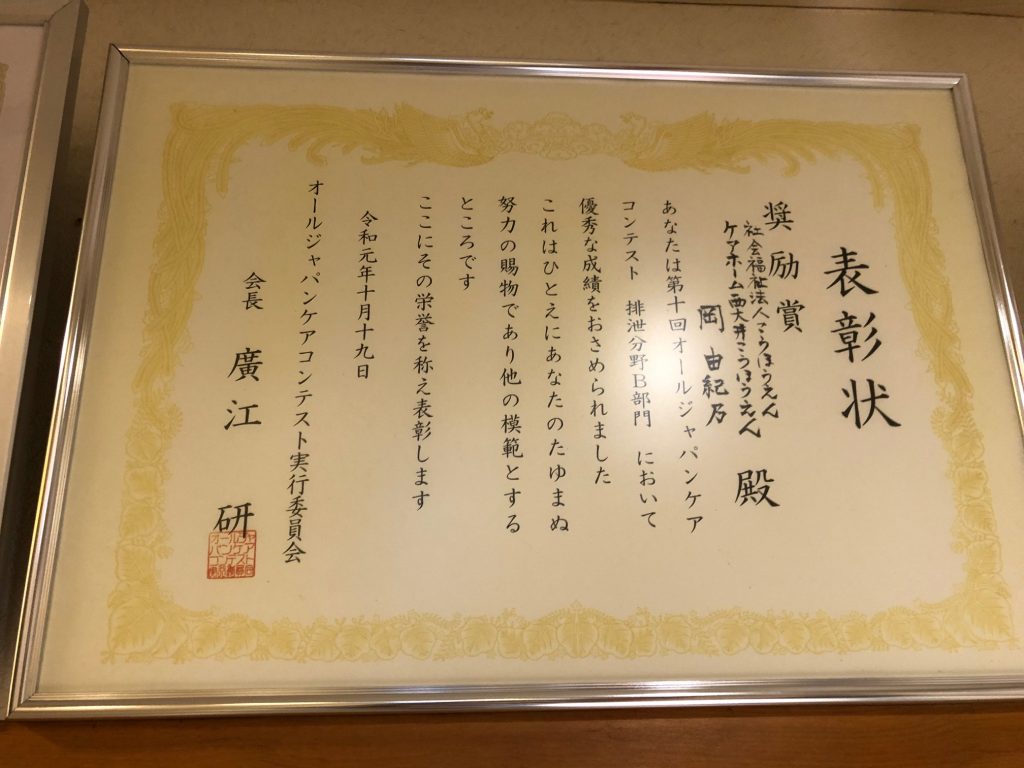 表彰状
奨励賞
社会福祉法人こうほうえん
ケアホーム西大井こうほうえん
岡 由紀乃 殿
あなたは第十回オールジャパンケア
コンテスト 排泄分野B部門 において
優秀な成績をおさめられました
これはひとえにあなたのたゆまぬ
努力の賜物であり他の模範とする
ところです
ここにその栄誉を称え表彰します
令和元年十月十九日
オールジャパンケアコンテスト実行委員会
会長 廣江 研